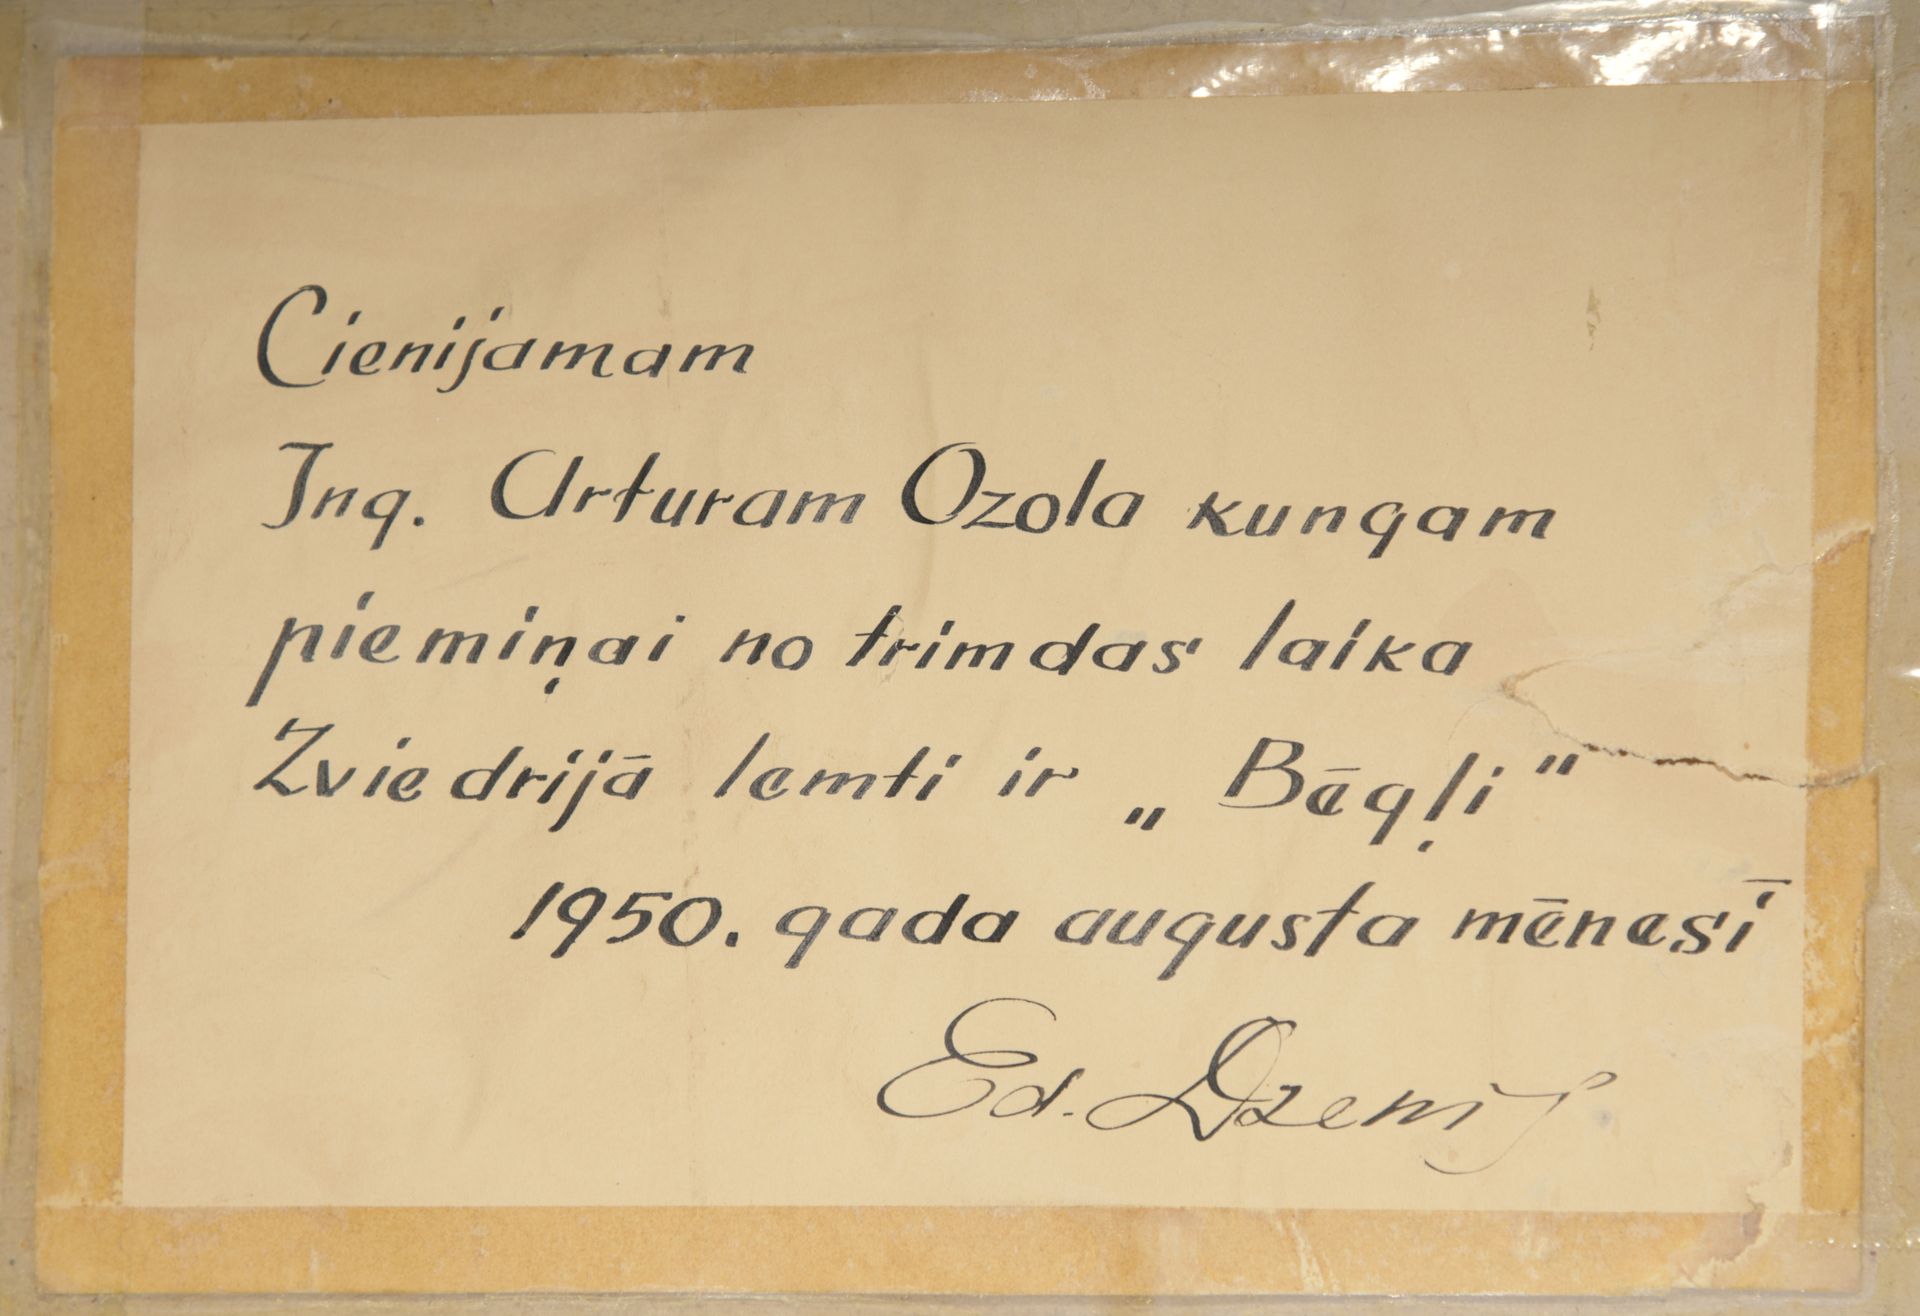 Cienijamam
Ing. Arturam Ozola kungam
piemiņai no trimdas laika
Zviedrijā lemti ir „Bēgļi“
1950. gada augusta mēnesī
Ed. Dzenis